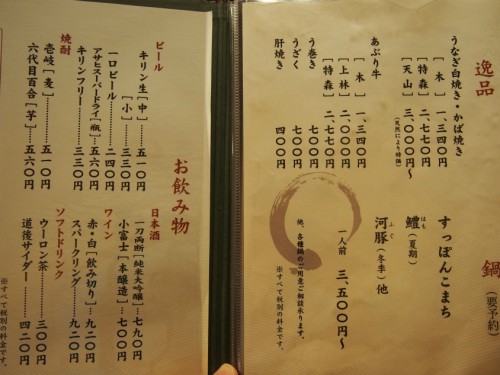 逸品
うなぎ白焼き・かば焼き
［木］ 一、三四〇円
［特森］ 二、七七〇円
［天山］ 三、〇〇〇円〜
（天然により特価）
あぶり牛
［木］ 一、三四〇円
［上林］ 二、〇〇〇円
［特森］ 二、七七〇円
うまき 七〇〇円
うざく 七〇〇円
肝焼き 四〇〇円
鍋（要予約）
すっぽんこまち
鱧（夏期）
はも
河豚（冬季）他
ふぐ
一人前 三、五〇〇円〜
他、各種鍋のご用意ご相談承ります。
※すべて税別の料金です。
お飲み物
ビール
キリン生［中］ 五一〇円
［小］ 三三〇円
一口ビール 二四〇円
アサヒスーパードライ［瓶］ 五六〇円
キリンフリー 三三〇円
焼酎
壱岐［麦］ 五一〇円
六代目百合［芋］ 五六〇円
日本酒
一刀両断［純米大吟醸］ 七九〇円
小富士［本醸造］ 七〇〇円
ワイン
赤・白［飲み切り］ 九二〇円
スパークリング 九二〇円
ソフトドリンク
ウーロン茶 三〇〇円
道後サイダー 四二〇円
※すべて税別の料金です。